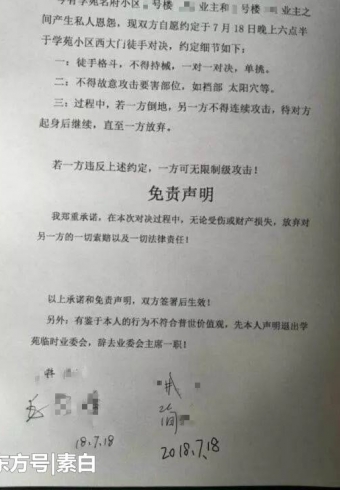 今有学苑名府小区 号楼 业主和 号楼 业主之
间产生私人恩怨，现双方自愿约定于 7 月 18 日晚上六点半
于学苑小区西大门徒手对决，约定细节如下：
一：徒手格斗，不得持械，一对一对决，单挑。
二：不得故意攻击要害部位，如裆部 太阳穴等。
三：过程中，若一方倒地，另一方不得连续攻击，待对方
起身后继续，直至一方放弃。
若一方违反上述约定，一方可无限制级攻击！
免责声明
我郑重承诺，在本次对决过程中，无论受伤或财产损失，放弃对
另一方的一切索赔以及一切法律责任！
以上承诺和免责声明，双方签署后生效！
另外：有鉴于本人的行为不符合普世价值观，先本人声明退出学
苑临时业委会，辞去业委会主席一职！
18.7.18
2018.7.18
东方号|素白